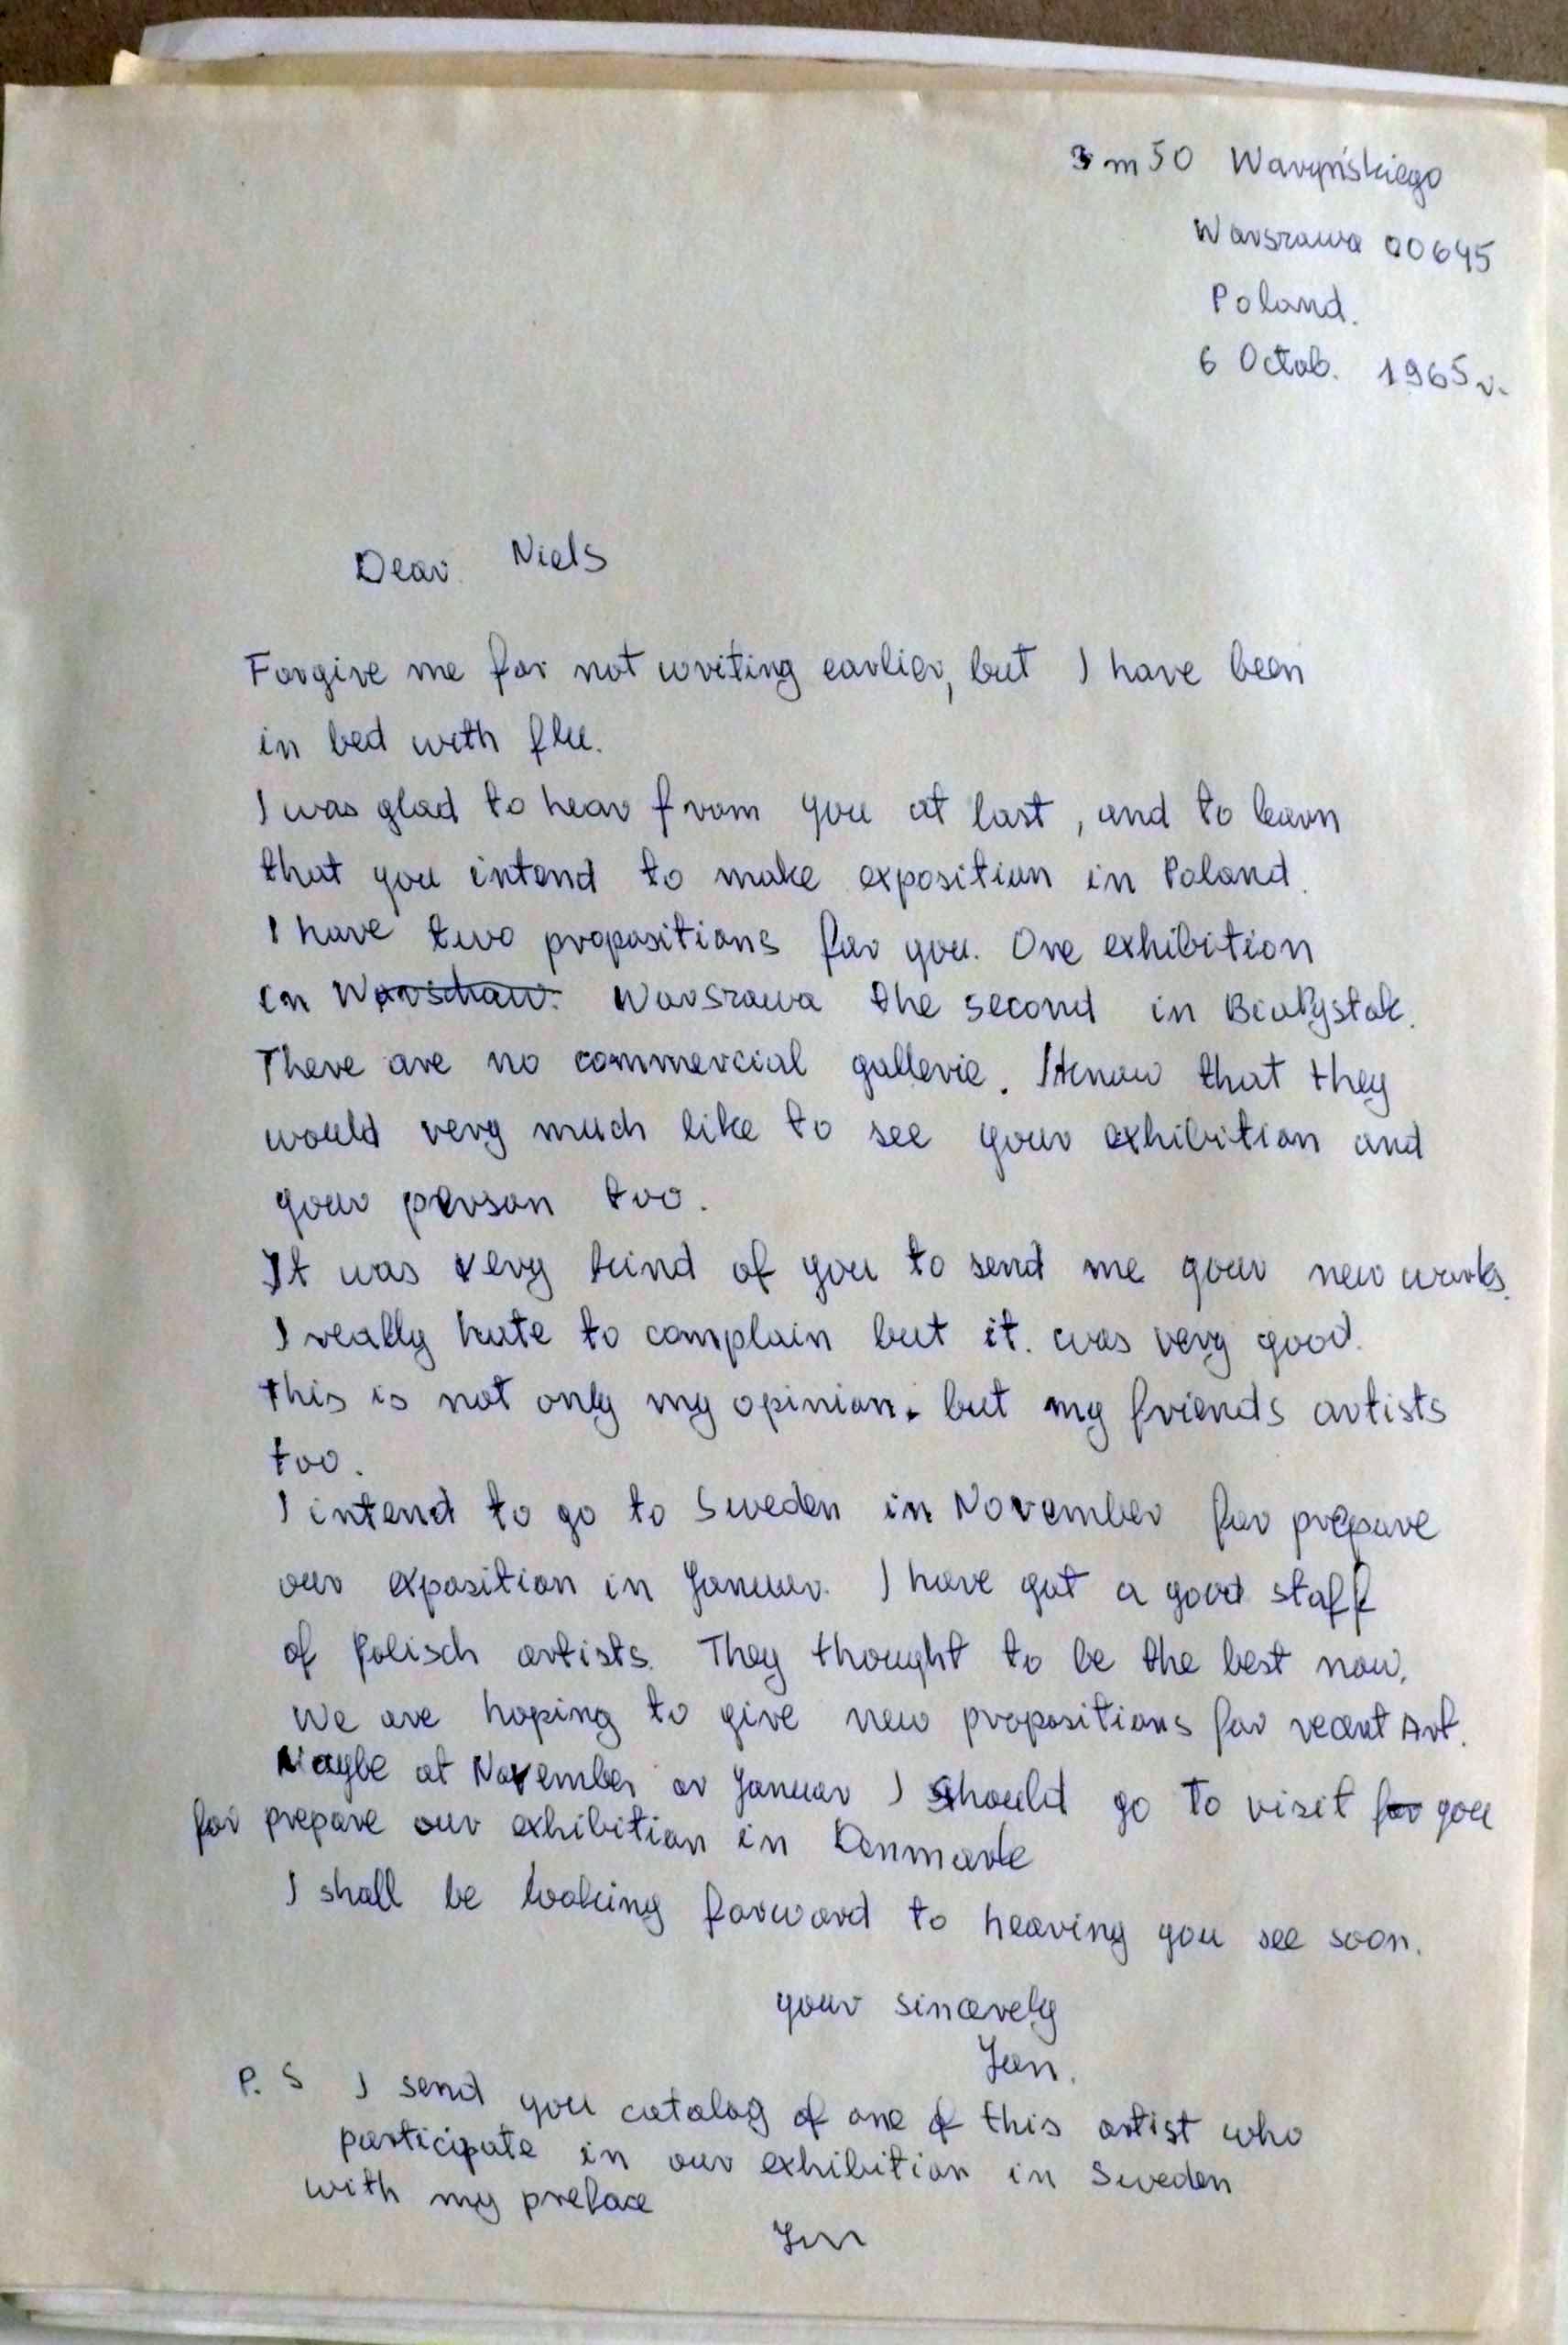 3 m 50 Waryńskiego
Warszawa 00645
Poland.
6 Octob. 1965 r.
Dear Niels
Forgive me for not writing earlier, but I have been
in bed with flu.
I was glad to hear from you at last, and to learn
that you intend to make exposition in Poland.
I have two propositions for you. One exhibition
in Warschaw. Warszawa the second in Białystok.
There are no commercial gallerie. I know that they
would very much like to see your exhibition and
your person too.
It was very kind of you to send me your new works.
I really hate to complain but it. was very good.
this is not only my opinion. but my friends artists
too.
I intend to go to Sweden in November for prepare
our exposition in Januar. I have got a good staff
of Polisch artists. They thought to be the best now.
We are hoping to give new propositions for recent Art.
Maybe at November or Januar I should go to visit for you
for prepare our exhibition in Danmark
I shall be looking forward to hearing you see soon.
your sincerely
Jan.
P. S I send you catalog of one of this artist who
participate in our exhibition in Sweden
with my preface
Jan